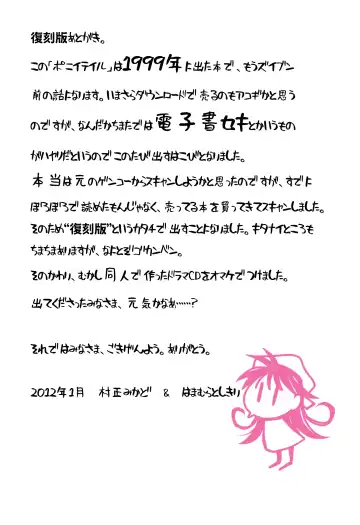 復刻版あとがき。
この「ポニイテイル」は1999年に出た本で、もうズイブン
前の話になります。いまさらダウンロードで売るのもアコギかと思う
のですが、なんだかちまたでは電子書セキとかいうもの
がハヤリだというのでこのたび出すはこびとなりました。
本当は元のゲンコーからスキャンしようかと思ったのですが、すでに
ぼろぼろで読めたもんじゃなく、売ってる本を買ってきてスキャンしました。
そのため“復刻版”というカタチで出すことになりました。キタナイところも
ちまちまありますが、なにとぞゴカンベン。
そのかわり、むかし同人で作ったドラマCDをオマケでつけました。
出てくださったみなさま、元気かなあ……?
それではみなさま、ごきげんよう。ありがとう。
2012年1月 村正みかど & はまむらとしきり